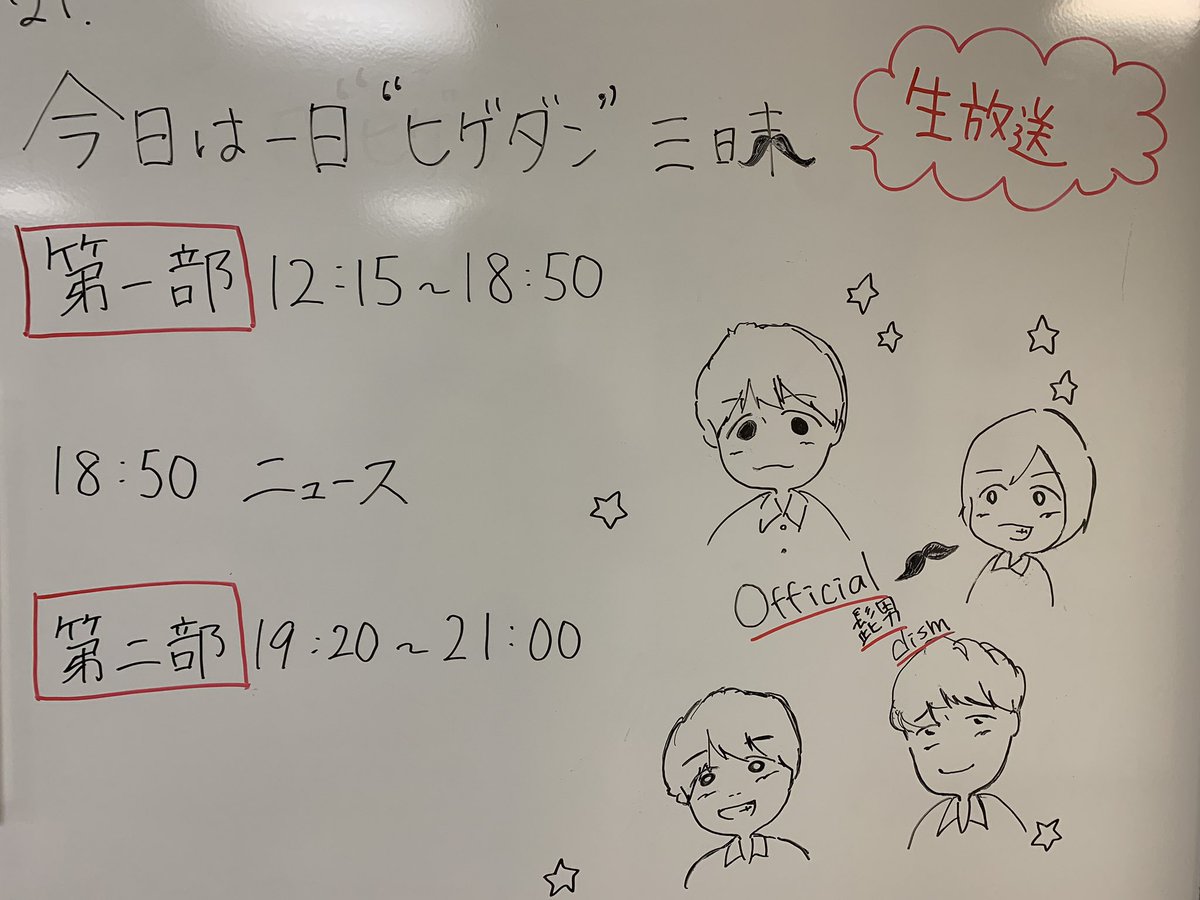 21.
今日は一日“ヒゲダン”三昧
生放送
第一部 12:15～18:50
18:50 ニュース
第二部 19:20～21:00
Official
髭男
dism